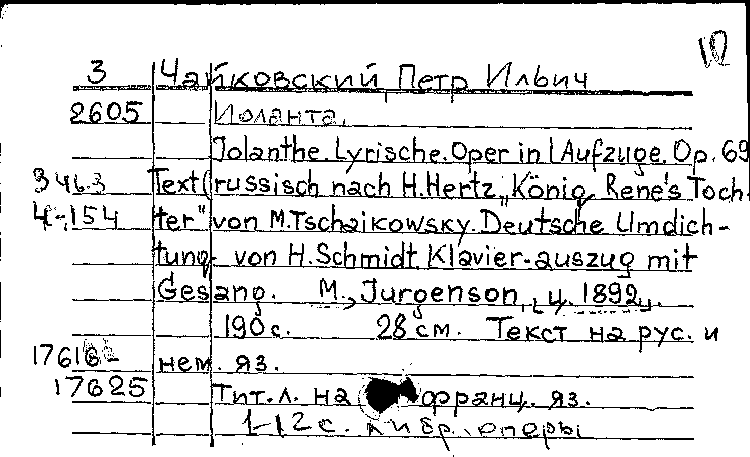 12
3 Чайковский Петр Ильич
2605 Иоланта.
Jolanthe. Lyrische. Oper in 1 Aufzuge. Op. 69
346.3 Text (russisch nach H. Hertz „König Rene's Toch-
4-154 ter" von M. Tschaikowsky. Deutsche Umdich-
tung von H. Schmidt. Klavier-auszug mit
Gesang. M., Jurgenson, [ц. 1892].
190 с. 28 см. Текст на рус. и
17616- нем. яз.
17625 Тит. л. на франц. яз.
1-12 с. либр. оперы